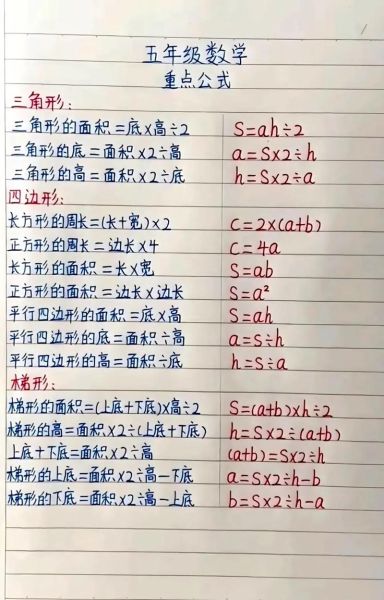 五年级数学
重点公式
三角形:
三角形的面积=底×高÷2 S=ah÷2
三角形的底=面积×2÷高 a=S×2÷h
三角形的高=面积×2÷底 h=S×2÷a
四边形:
长方形的周长=(长+宽)×2 C=2×(a+b)
正方形的周长=边长×4 C=4a
长方形的面积=长×宽 S=ab
正方形的面积=边长×边长 S=a²
平行四边形的面积=底×高 S=ah
平行四边形的底=面积÷高 a=S÷h
平行四边形的高=面积÷底 h=S÷a
梯形:
梯形的面积=(上底+下底)×高÷2 S=(a+b)×h÷2
梯形的高=面积×2÷(上底+下底) h=S×2÷(a+b)
上底+下底=面积×2÷高 (a+b)=S×2÷h
梯形的上底=面积×2÷高-下底 a=S×2÷h-b
梯形的下底=面积×2÷高-上底 b=S×2÷h-a